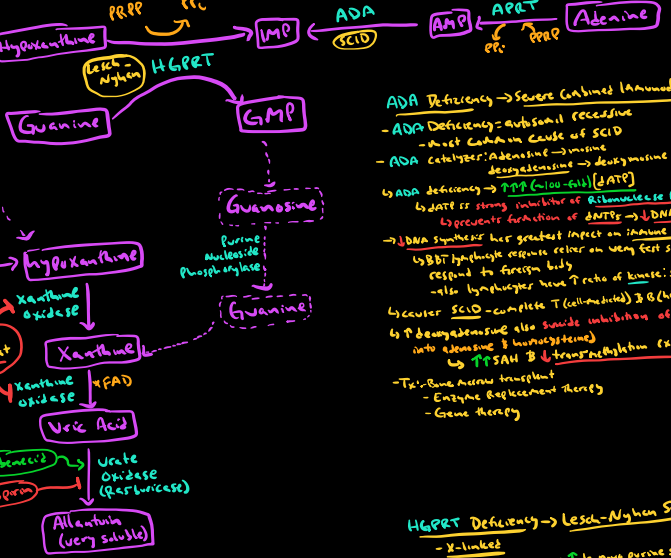 PRPP
PPi
ADA
APRT
Hypoxanthine
IMP
AMP
Adenine
SCID
PPi
PRPP
Lesch-
Nyhan
HGPRT
Guanine
GMP
Guanosine
Purine
Nucleoside
Phosphorylase
hypoxanthine
Guanine
Xanthine
oxidase
Xanthine
*FAD
xanthine
oxidase
Uric Acid
urate
oxidase
(Rasburicase)
Allantoin
(very soluble)
ADA Deficiency → Severe Combined Immunod
- ADA Deficiency = autosomal recessive
- most common cause of SCID
- ADA catalyzes: Adenosine → inosine
deoxyadenosine → deoxyinosine
↳ ADA deficiency → ↑↑↑ (~100-fold) [dATP]
↳ dATP is strong inhibitor of Ribonuclease
↳ prevents formation of dNTPs → ↓ DN
→ ↓DNA synthesis has greatest impact on immune
↳ B&T lymphocyte response relies on very fast s
respond to foreign body
- also lymphocytes have ↑ ratio of kinase:
↳ causes SCID - complete T (cell-mediated) & B (h
↳ ↑ deoxyadenosine also suicide inhibition of
into adenosine & homocysteine)
↳ ↑↑SAH & ↓ transmethylation
- Tx: - Bone Marrow transplant
- Enzyme Replacement Therapy
- Gene therapy
HGPRT Deficiency → Lesch-Nyhan S
- X-linked